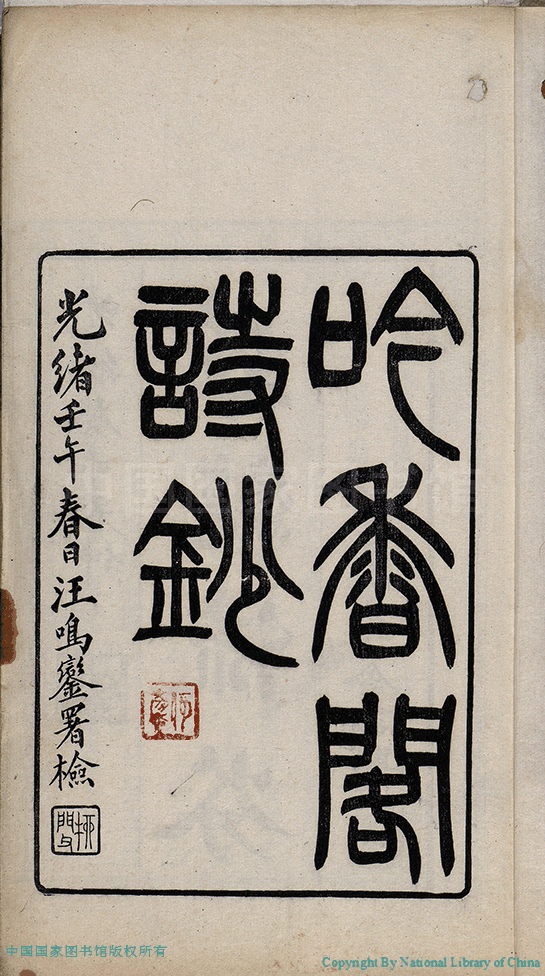 吟香閣
詩鈔
光緒壬午春日汪鳴鑾署檢
柳門
中国国家图书馆版权所有
Copyright By National Library of China